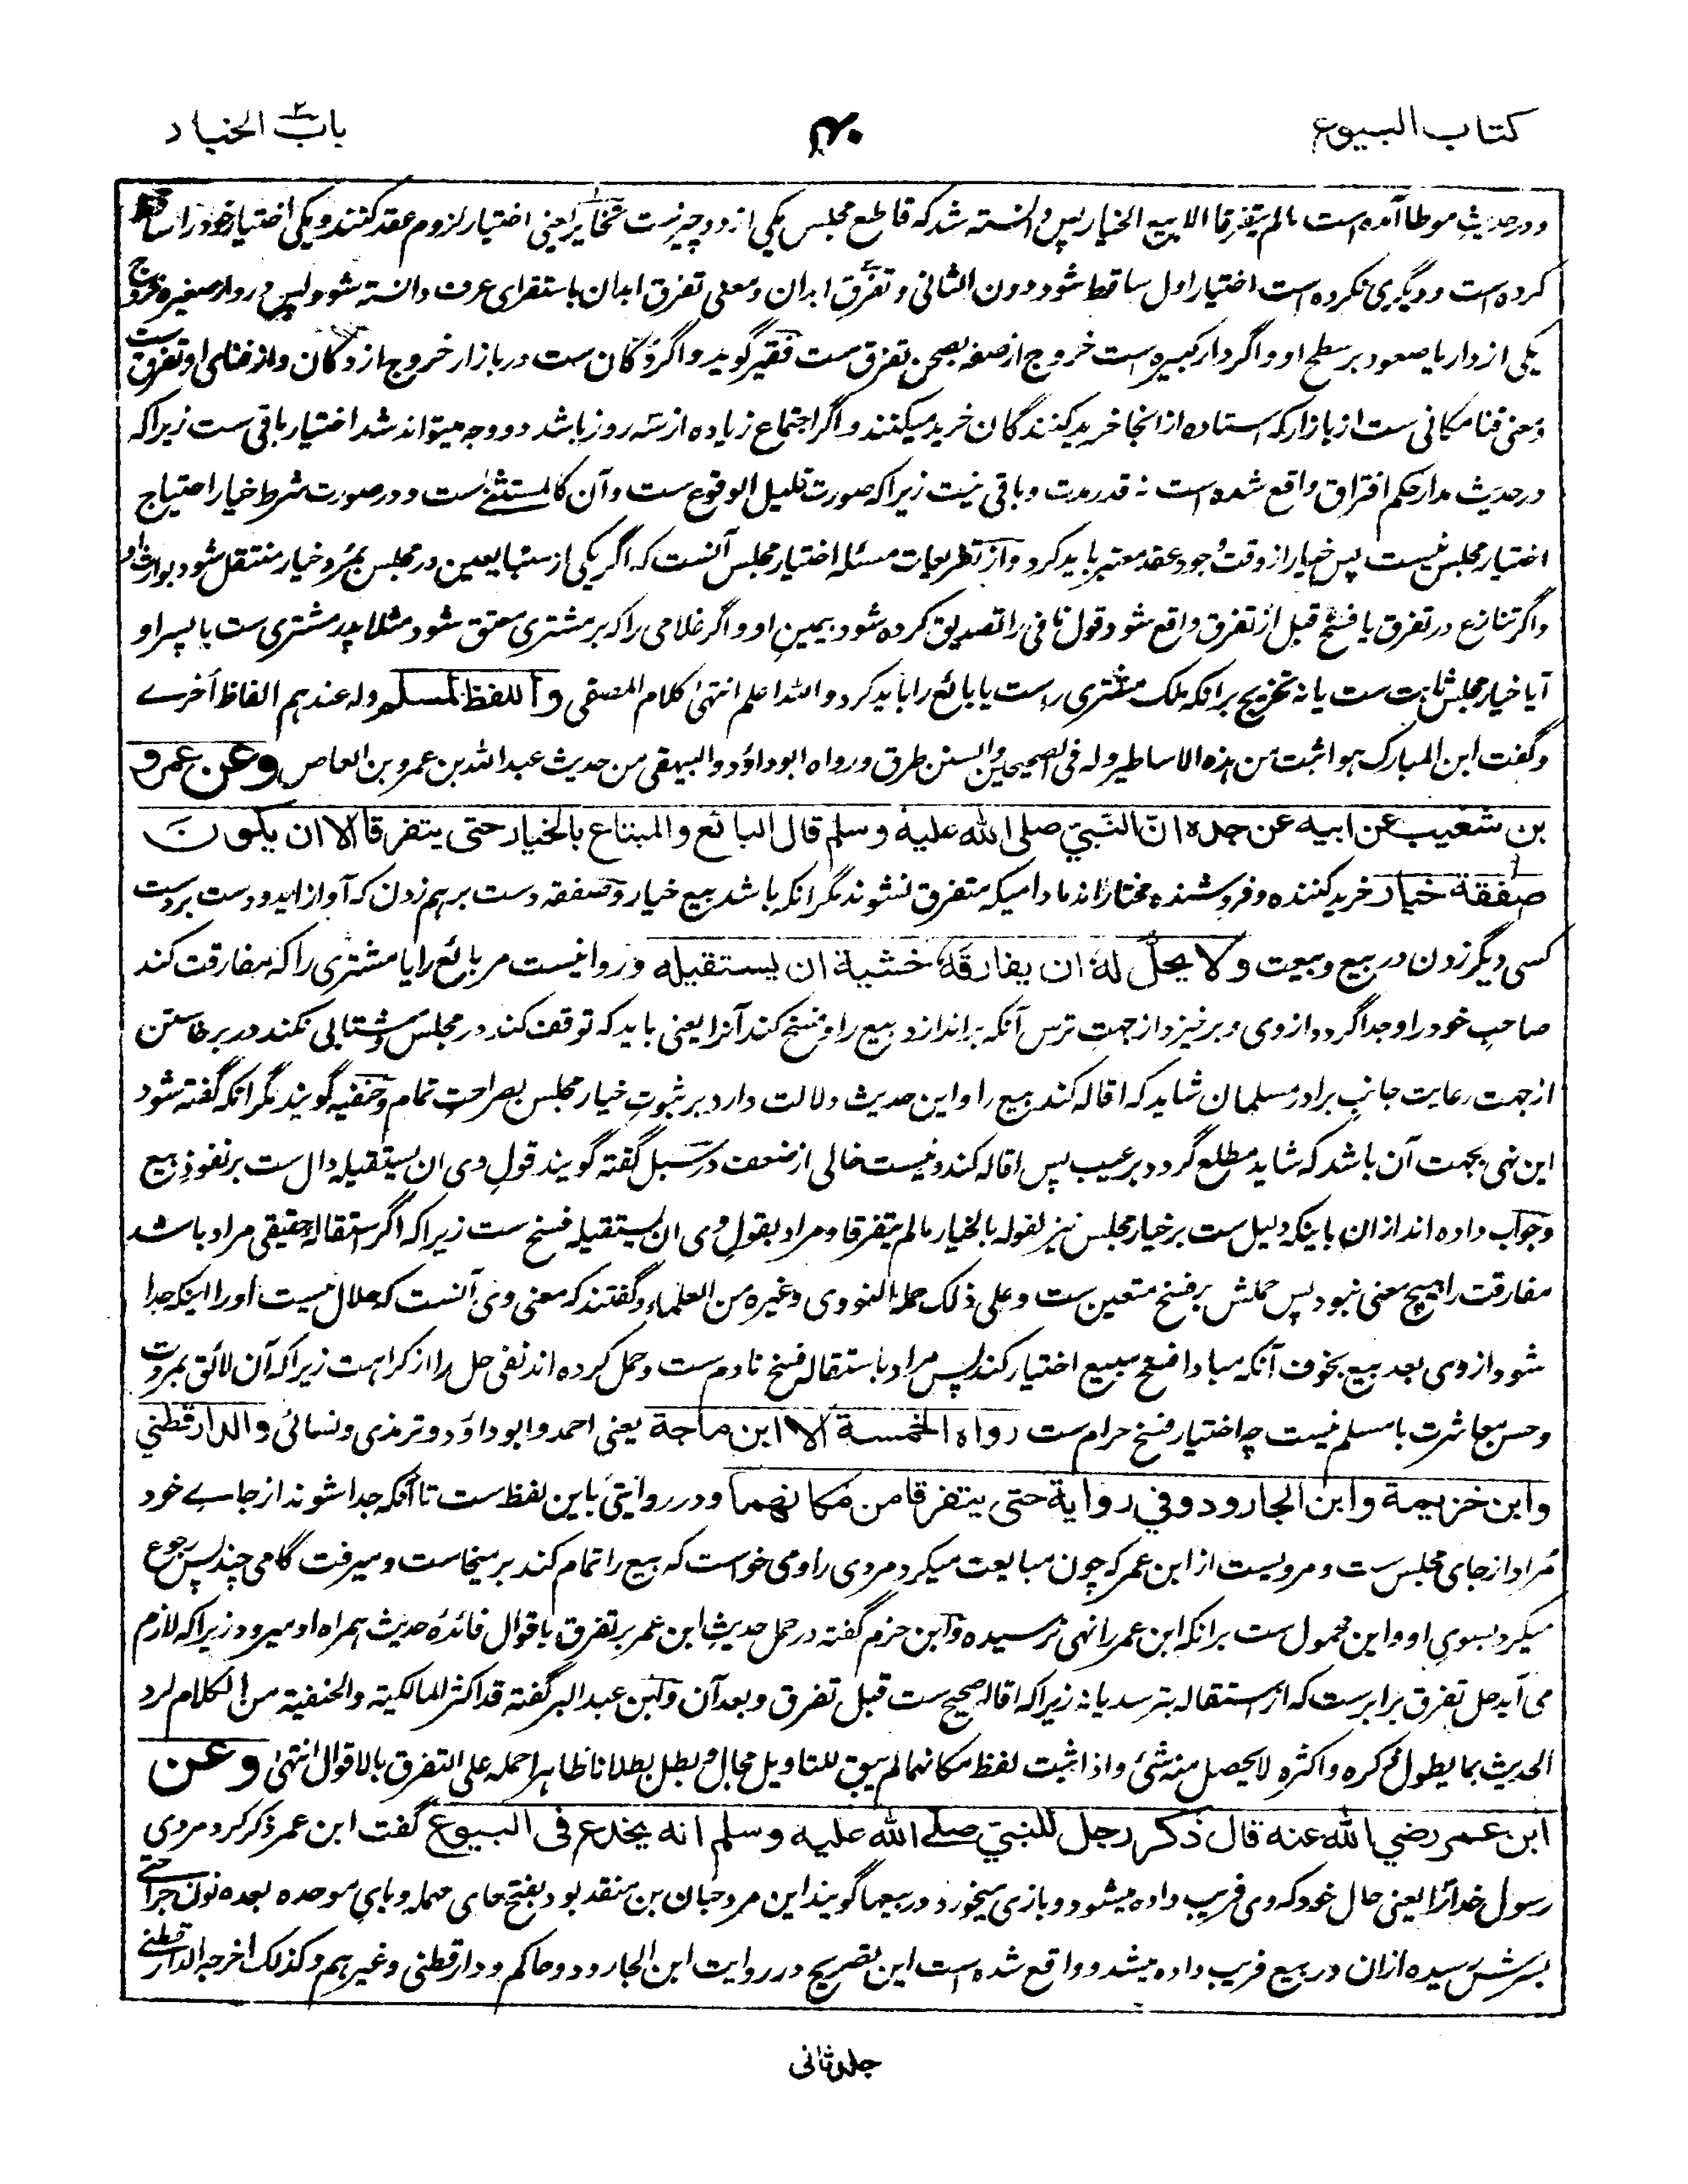 كتاب البيوع
۴۰
باب الخيار
و در حدیث موطا آمده است مالم یتفرقا الا بیع الخیار پس دانسته شد که قاطع مجلس یکی از دو چیز ست تخایر یعنی اختیار لزوم عقد کنند و یکی اختیار خود را ساقط
کرده است و دیگری نکرده است اختیار اول ساقط شود دون الثانی و تفرق ابدان و معنی تفرق ابدان باستقرای عرف دانسته شود پس در دار صغیره خروج
یکی از دار یا صعود بر سطح او و اگر دار کبیره است خروج از صفه بصحن تفرق ست فقیر گوید و اگر دکان ست در بازار خروج از دکان و از فنای او تفرق ست
و معنی فنا مکانی ست از بازار که استاده از انجا خرید کنندگان خرید میکنند و اگر اجتماع زیاده از سه روز باشد دو وجه میتواند شد اختیار باقی ست زیرا که
در حدیث مدار حکم افتراق واقع شده است نه قدر مدت و باقی نیست زیرا که صورت قلیل الوقوع ست و آن کالمستثنی ست و در صورت شرط خیار احتیاج
اختیار مجلس نیست پس خیار از وقت وجود عقد معتبر باید کرد و از تفریعات مسئله اختیار مجلس آنست که اگر یکی از متبایعین در مجلس بمرد خیار منتقل شود بوارث او
و اگر تنازع در تفرق یا فسخ قبل از تفرق واقع شود قول نافی را تصدیق کرده شود بیمین او و اگر غلامی را که بر مشتری معتق شود مثلا پدر مشتری ست یا پسر او
آیا خیار مجلس ثابت ست یا نه تخریج بر انکه ملک مشتری راست یا بائع را باید کرد و الله اعلم انتهی کلام المصفی و اللفظ لمسلم وله عندهم الفاظ أخرے
و گفت ابن المبارک هو اثبت من هذه الاساطیر وله فی الصحیحین و السنن طرق و رواه ابو داؤد و البیهقی من حدیث عبد الله بن عمرو بن العاص وعن عمرو
بن شعيب عن ابيه عن جده انّ النّبيّ صلى الله عليه وسلم قال البائع والمبتاع بالخيار حتى يتفرقا الا ان يكون
صفقة خيار خرید کننده و فروشنده مختار اند مادامیکه متفرق نشوند مگر انکه باشد بیع خیار و صفقه دست بر هم زدن که آواز اید و دست بر دست
کسی دیگر زدن در بیع و بیعت ولا يحلّ له ان يفارقه خشية ان يستقيله و روا نیست مر بائع را یا مشتری را که مفارقت کند
صاحب خود را و جدا گردد از وی و برخیزد از جهت ترس آنکه براندازد بیع را و فسخ کند آنرا یعنی باید که توقف کند در مجلس و شتابی نکند در برخاستن
از جهت رعایت جانب برادر مسلمان شاید که اقاله کند بیع را و این حدیث دلالت دارد بر ثبوت خیار مجلس بصراحت تمام و حنفیه گویند مگر انکه گفته شود
این نهی بجهت آن باشد که شاید مطلع گردد بر عیب پس اقاله کند و نیست خالی از ضعف در سبل گفته گویند قول وی ان یستقیله دال ست بر نفوذ بیع
و جواب داده اند از ان باینکه دلیل ست بر خیار مجلس نیز لقوله بالخیار مالم یتفرقا و مراد بقول وی ان یستقیله فسخ ست زیرا که اگر استقاله حقیقی مراد باشد
مفارقت را هیچ معنی نبود پس حملش بر فسخ متعین ست و علی ذلک حمله النووی و غیره من العلماء و گفتند که معنی وی آنست که حلال نیست او را اینکه جدا
شود از وی بعد بیع بخوف آنکه مبادا فسخ مبیع اختیار کند پس مراد باستقاله فسخ نادم ست و حمل کرده اند نفی حل را از کراهت زیرا که آن لائق بمروت
و حسن معاشرت با مسلم نیست چه اختیار فسخ حرام ست رواه الخمسة الا ابن ماجة یعنی احمد و ابو داؤد و ترمذی و نسائی والدارقطني
وابن خزيمة وابن الجارود وفي رواية حتى يتفرقا من مكانهما و در روایتی باین لفظ ست تا آنکه جدا شوند از جاے خود
مراد از جای مجلس ست و مرویست از ابن عمر که چون مبایعت میکرد مردی را و می خواست که بیع را تمام کند بر میخاست و میرفت گامی چند پس رجوع
میکرد بسوی او و این محمول ست بر انکه ابن عمر را نهی نرسیده و ابن حزم گفته در حمل حدیث ابن عمر بر تفرق باقوال فائده حدیث همراه او میرود زیرا که لازم
می آید حل تفرق برابر ست که از استقاله بترسد یا نه زیرا که اقاله صحیح ست قبل تفرق و بعد آن و ابن عبد البر گفته قد اکثر المالکیة و الحنفیة من الکلام لرد
الحدیث بما یطول ذکره و اکثره لا یحصل منه شئ و اذا ثبت لفظ مکانهما لم یبق للتاویل مجال و بطل بطلانا ظاهرا حمله علی التفرق بالاقوال انتهی وعن
ابن عمر رضي الله عنه قال ذكر رجل للنبيّ صلے الله عليه وسلم انه يخدع فى البيوع گفت ابن عمر ذکر کرد مردی
رسول خدا را یعنی حال خود که وی فریب داده میشود و بازی میخورد در بیعها گویند این مرد حبان بن منقذ بود بفتح حای مهمله و بای موحده بعده نون جراحتے
بسرش رسیده ازان در بیع فریب داده میشد و واقع شده است این تصریح در روایت ابن الجارود و حاکم و دارقطنی و غیرهم و کذلک اخرجه الدارقطنے
جلد ثانی